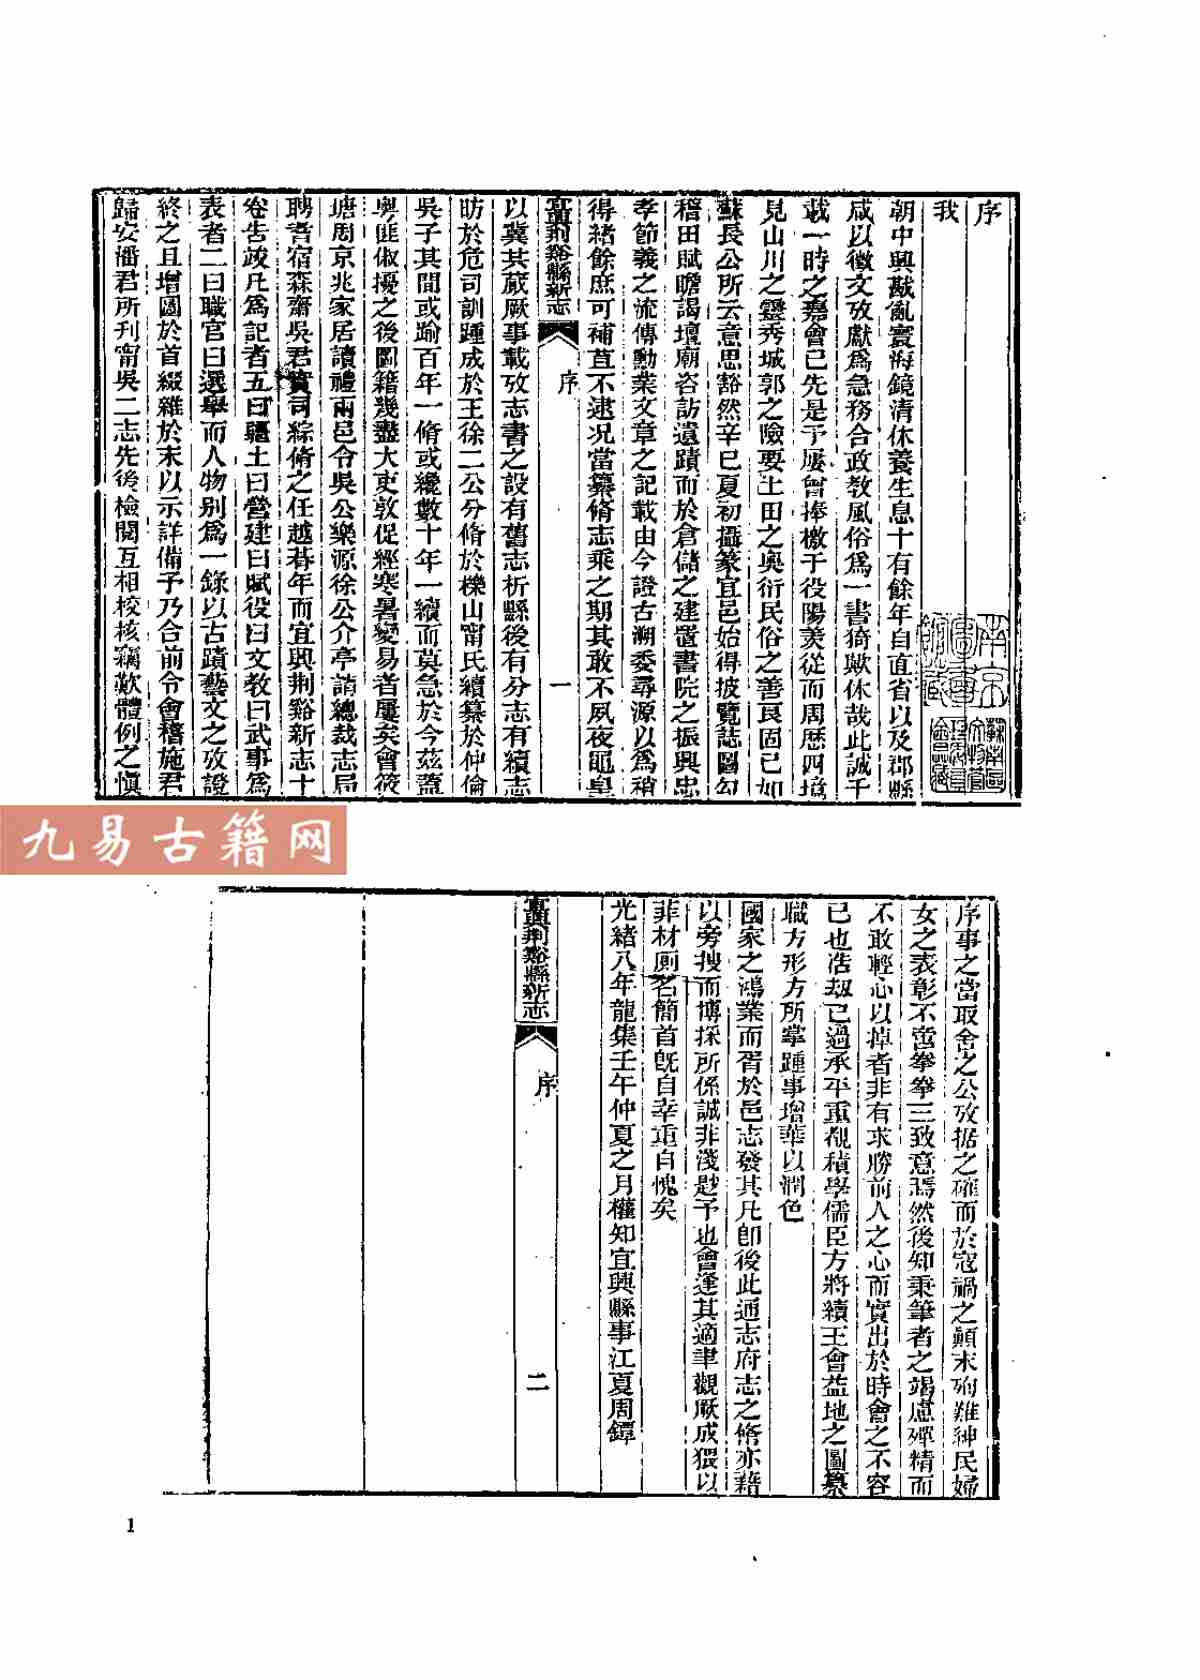 序
我
朝中興戡亂寰海鏡清休養生息十有餘年自直省以及郡縣
咸以徵文攷獻爲急務合政教風俗爲一書猗歟休哉此誠千
載一時之嘉會已先是予屢曾捧檄于役陽羨從而周歷四境
見山川之靈秀城郭之險要土田之奥衍民俗之善良固已如
蘇長公所云意思豁然辛巳夏初攝篆宜邑始得披覽誌圖勾
稽田賦瞻謁壇廟咨訪遺蹟而於倉儲之建置書院之振興忠
孝節義之流傳勳業文章之記載由今證古溯委尋源以爲稍
得緒餘庶可補苴不逮況當纂脩志乘之期其敢不夙夜黽皇
宜興荆谿縣新志
序
一
以冀其蕆厥事載攷志書之設有舊志析縣後有分志有續志
昉於危司訓踵成於王徐二公分脩於櫟山甯氏續纂於仲倫
吳子其間或踰百年一脩或纔數十年一續而莫急於今茲蓋
粤匪俶擾之後圖籍幾盡大吏敦促經寒暑變易者屢矣會筱
塘周京兆家居讀禮兩邑令吳公樂源徐公介亭請總裁志局
聘耆宿森齋吳君實司綜脩之任越朞年而宜興荆谿新志十
卷告竣凡爲記者五曰疆土曰營建曰賦役曰文教曰武事爲
表者二曰職官曰選舉而人物别爲一錄以古蹟藝文之攷證
終之且增圖於首綴雜於末以示詳備予乃合前令會稽施君
歸安潘君所刊甯吳二志先後檢閲互相校核竊歎體例之愼
序事之當取舍之公攷据之確而於寇禍之顚末殉難紳民婦
女之表彰不啻拳拳三致意焉然後知秉筆者之竭慮殫精而
不敢輕心以掉者非有求勝前人之心而實出於時會之不容
已也浩劫已過承平重覩積學儒臣方將續王會益地之圖纂
職方形方所掌踵事增華以潤色
國家之鴻業而胥於邑志發其凡卽後此通志府志之脩亦藉
以旁搜而博採所係誠非淺尟予也會逢其適聿觀厥成猥以
菲材厠名簡首旣自幸重自愧矣
光緒八年龍集壬午仲夏之月權知宜興縣事江夏周鐔
宜興荆谿縣新志
序
二
九易古籍网
1